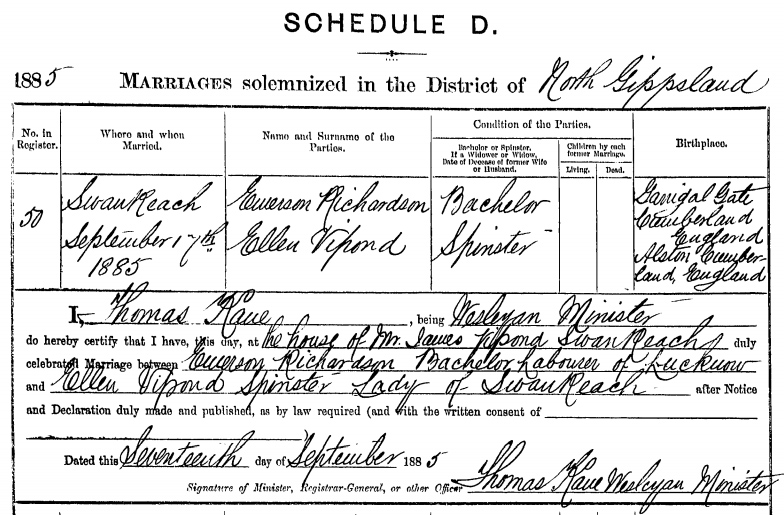 SCHEDULE D.
1885 MARRIAGES solemnized in the District of North Gippsland
No. in Register.
Where and when Married.
Name and Surname of the Parties.
Condition of the Parties.
Bachelor or Spinster, If a Widower or Widow, Date of Decease of former Wife or Husband.
Children by each former Marriage.
Living. Dead.
Birthplace.
50
Swan Reach
September 17th
1885
Emerson Richardson
Ellen Vipond
Bachelor
Spinster
Garrigal Gate
Cumberland
England
Alston Cumber-
land, England
I, Thomas Kane, being Wesleyan Minister
do hereby certify that I have, this day, at the house of Mr. James Vipond Swan Reach duly
celebrated Marriage between Emerson Richardson Bachelor Labourer of Lucknow
and Ellen Vipond Spinster Lady of Swan Reach after Notice
and Declaration duly made and published, as by law required (and with the written consent of
)
Dated this Seventeenth day of September 1885
Signature of Minister, Registrar-General, or other Officer Thomas Kane Wesleyan Minister